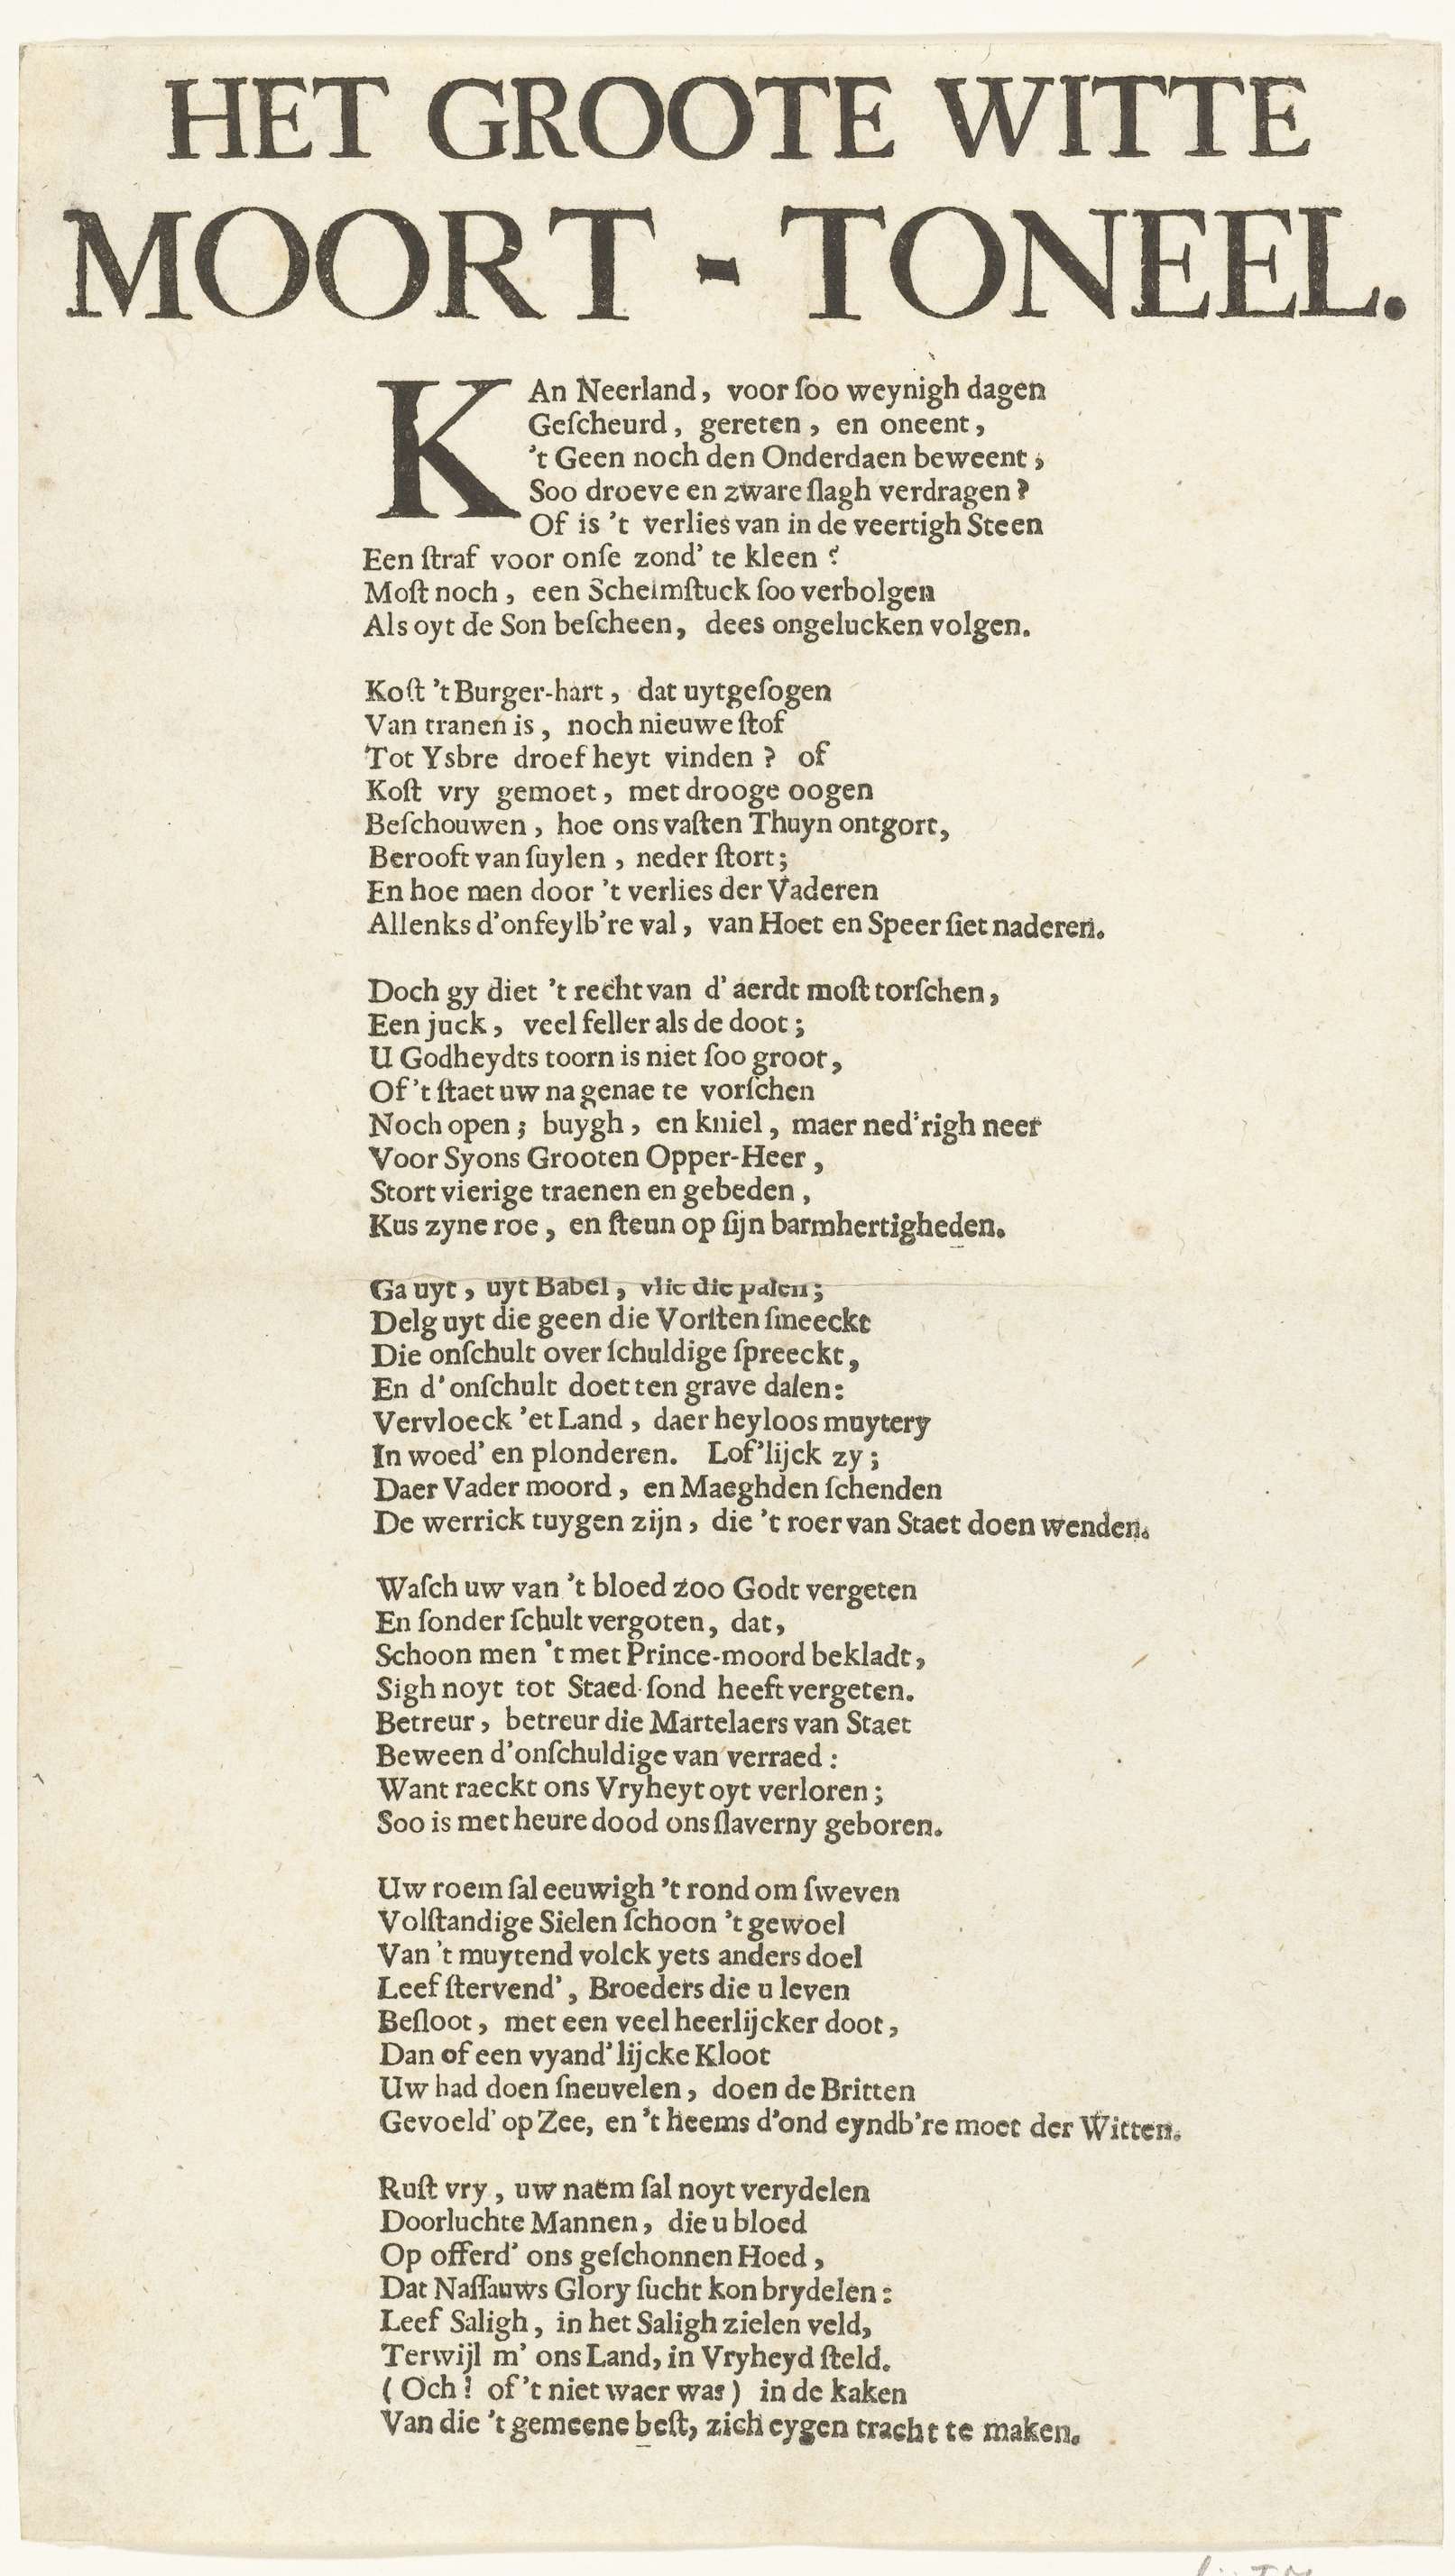 HET GROOTE WITTE
MOORT-TONEEL.
KAn Neerland, voor ſoo weynigh dagen
Geſcheurd, gereten, en oneent,
't Geen noch den Onderdaen beweent,
Soo droeve en zware ſlagh verdragen?
Of is 't verlies van in de veertigh Steen
Een ſtraf voor onſe zond' te kleen?
Moſt noch, een Schelmſtuck ſoo verbolgen
Als oyt de Son beſcheen, dees ongelucken volgen.
Koſt 't Burger-hart, dat uytgeſogen
Van tranen is, noch nieuwe ſtof
Tot Ysbre droefheyt vinden? of
Koſt vry gemoet, met drooge oogen
Beſchouwen, hoe ons vaſten Thuyn ontgort,
Berooft van ſuylen, neder ſtort;
En hoe men door 't verlies der Vaderen
Allenks d'onfeylb're val, van Hoet en Speer ſiet naderen.
Doch gy diet 't recht van d' aerdt moſt torſchen,
Een juck, veel feller als de doot;
U Godheydts toorn is niet ſoo groot,
Of 't ſtaet uw na genae te vorſchen
Noch open; buygh, en kniel, maer ned'righ neer
Voor Syons Grooten Opper-Heer,
Stort vierige traenen en gebeden,
Kus zyne roe, en ſteun op ſijn barmhertigheden.
Ga uyt, uyt Babel, vlie die palen;
Delg uyt die geen die Vorſten ſmeeckt
Die onſchult over ſchuldige ſpreeckt,
En d' onſchult doet ten grave dalen:
Vervloeck 'et Land, daer heyloos muytery
In woed' en plonderen. Lof'lijck zy;
Daer Vader moord, en Maeghden ſchenden
De werrick tuygen zijn, die 't roer van Staet doen wenden.
Waſch uw van 't bloed zoo Godt vergeten
En ſonder ſchult vergoten, dat,
Schoon men 't met Prince-moord bekladt,
Sigh noyt tot Staed-ſond heeft vergeten.
Betreur, betreur die Martelaers van Staet
Beween d'onſchuldige van verraed:
Want raeckt ons Vryheyt oyt verloren;
Soo is met heure dood ons ſlaverny geboren.
Uw roem ſal eeuwigh 't rond om ſweven
Volſtandige Sielen ſchoon 't gewoel
Van 't muytend volck yets anders doel
Leef ſtervend', Broeders die u leven
Beſloot, met een veel heerlijcker doot,
Dan of een vyand'lijcke Kloot
Uw had doen ſneuvelen, doen de Britten
Gevoeld' op Zee, en 't heems d'ond eyndb're moet der Witten.
Ruſt vry, uw naem ſal noyt verydelen
Doorluchte Mannen, die u bloed
Op offerd' ons geſchonnen Hoed,
Dat Naſſauws Glory ſucht kon brydelen:
Leef Saligh, in het Saligh zielen veld,
Terwijl m' ons Land, in Vryheyd ſteld.
(Och! of 't niet waer was) in de kaken
Van die 't gemeene beſt, zich eygen tracht te maken.